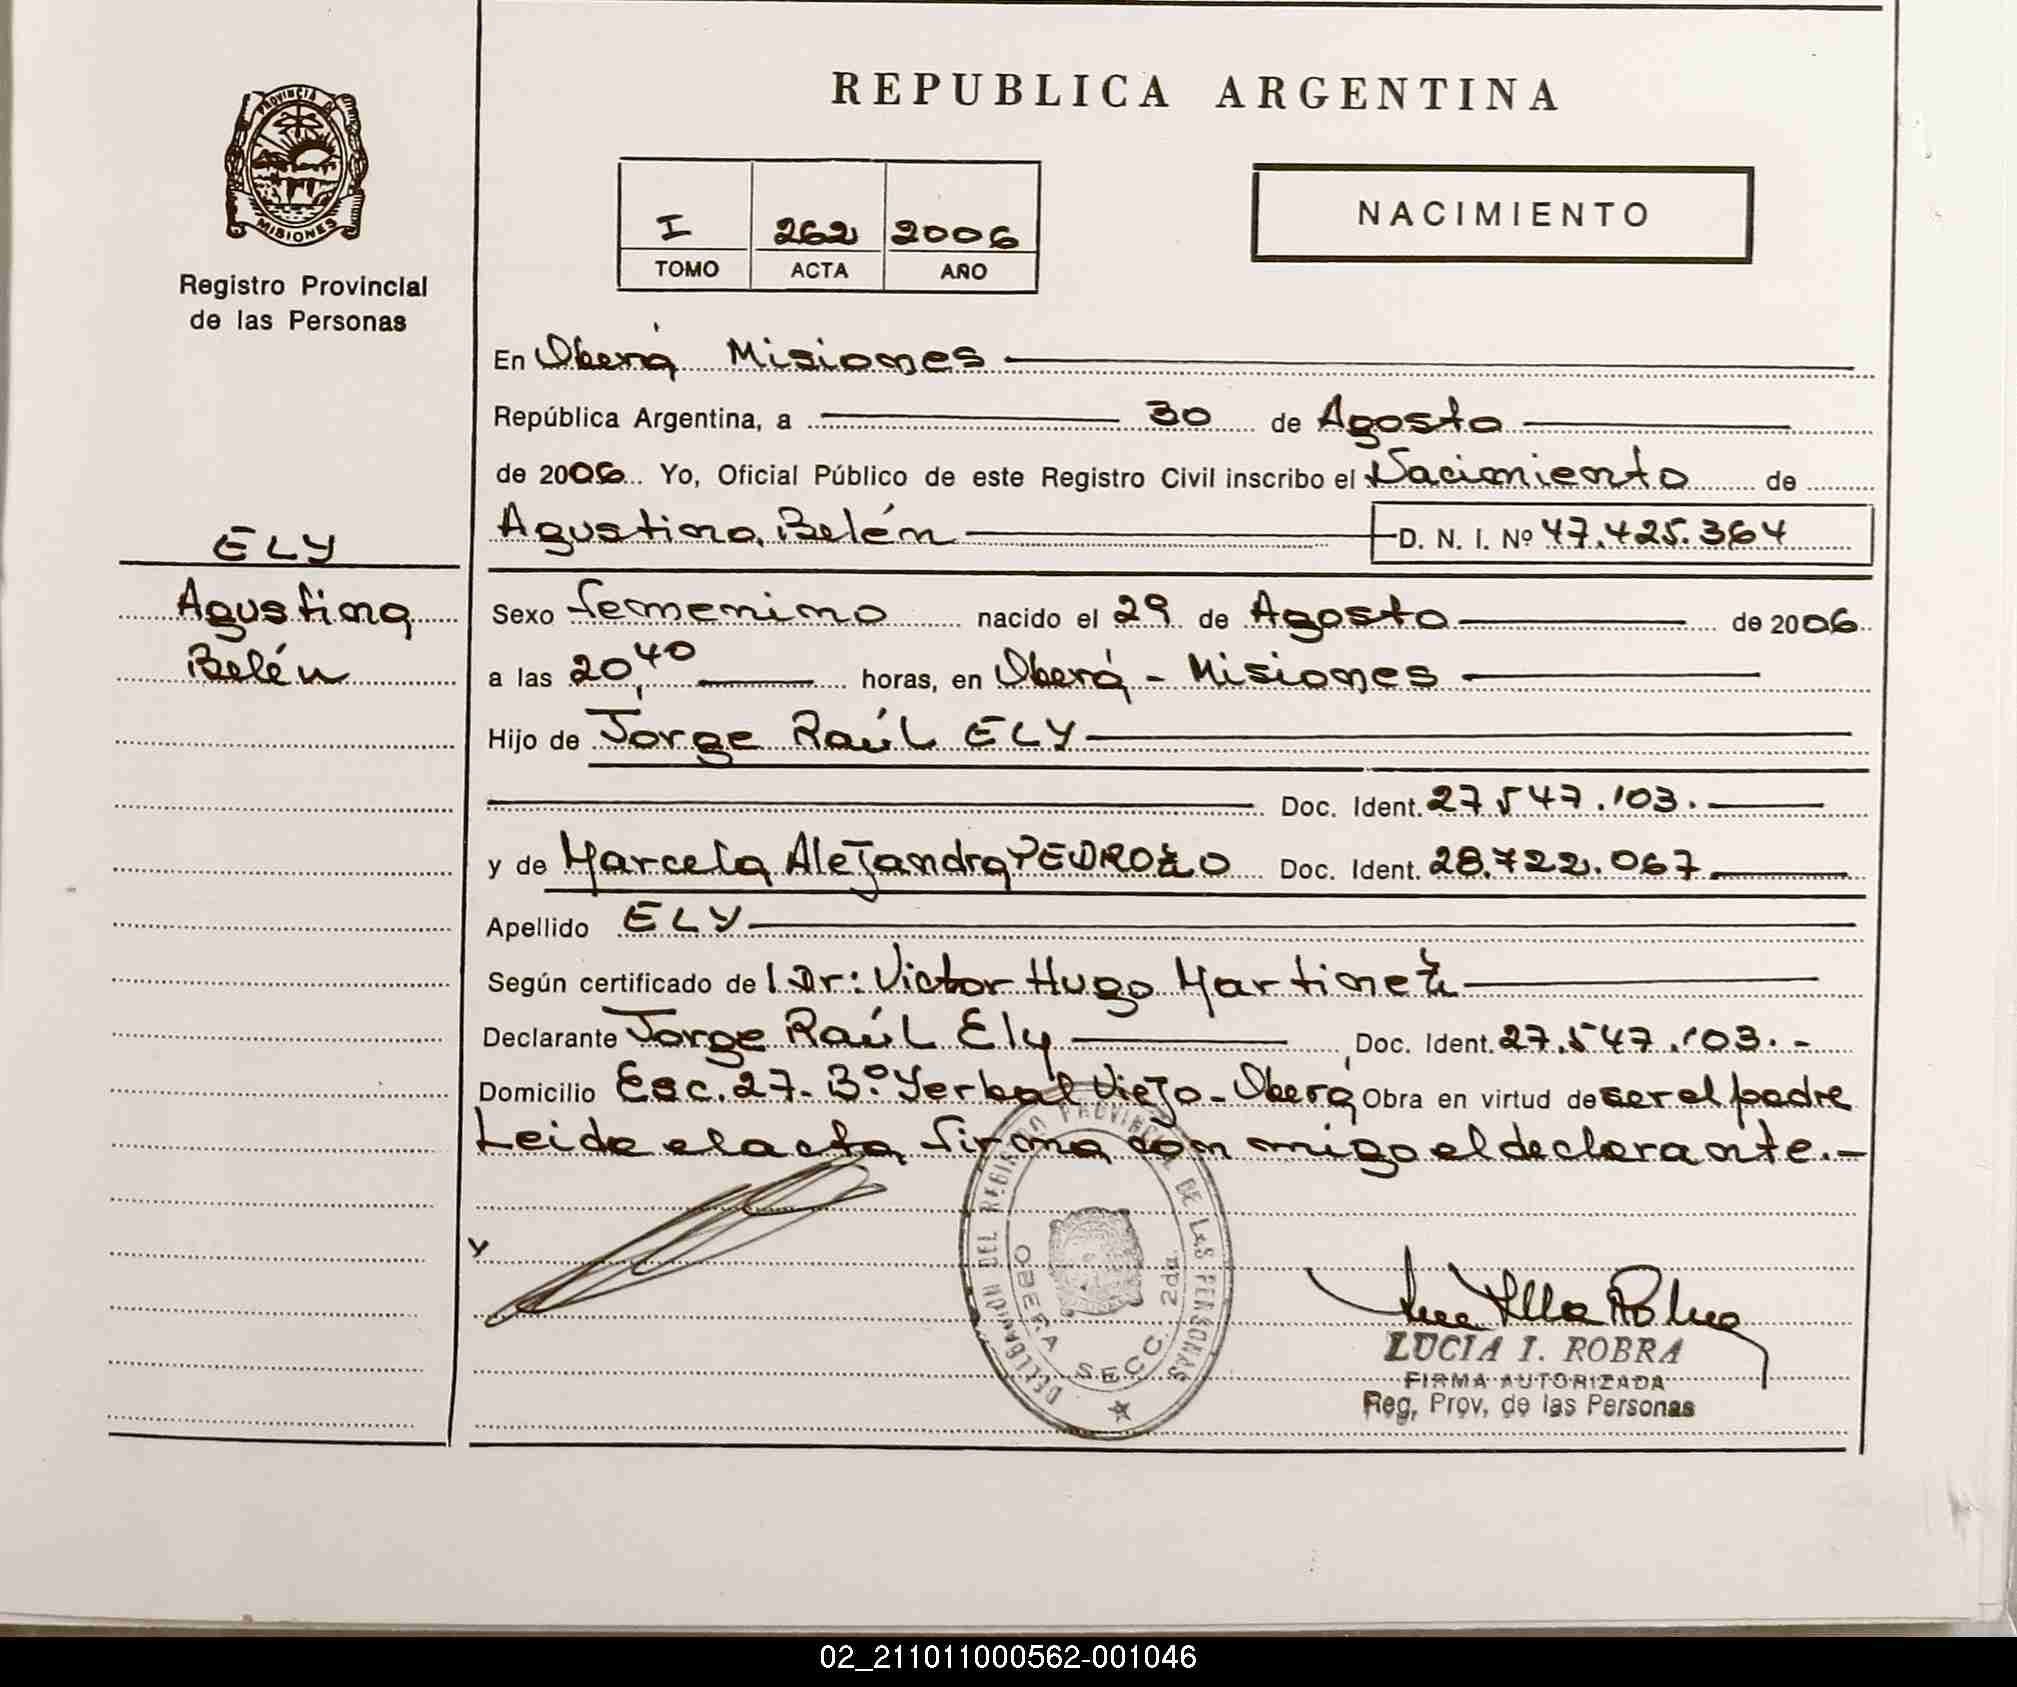 REPUBLICA ARGENTINA
PROVINCIA DE
MISIONES
Registro Provincial
de las Personas
I 262 2006
TOMO ACTA AÑO
NACIMIENTO
En Oberá Misiones
República Argentina, a 30 de Agosto
de 2006 Yo, Oficial Público de este Registro Civil inscribo el Nacimiento de
ELY
Agustina
Belén
Agustina Belén D. N. I. Nº 47.425.364
Sexo femenino nacido el 29 de Agosto de 2006
a las 20,40 horas, en Oberá - Misiones
Hijo de Jorge Raúl ELY
Doc. Ident. 27.547.103.
y de Marcela Alejandra PEDROZO Doc. Ident. 28.722.067
Apellido ELY
Según certificado de l Dr: Victor Hugo Martinez
Declarante Jorge Raúl Ely Doc. Ident. 27.547.103.-
Domicilio Esc. 27- Bº Yerbal Viejo - Oberá Obra en virtud de ser el padre
Leida el acta firma con migo el declarante.-
DELEGACION DEL REGISTRO PROVINCIAL DE LAS PERSONAS
OBERA SECC. 2da.
LUCIA I. ROBRA
FIRMA AUTORIZADA
Reg. Prov. de las Personas
02_211011000562-001046